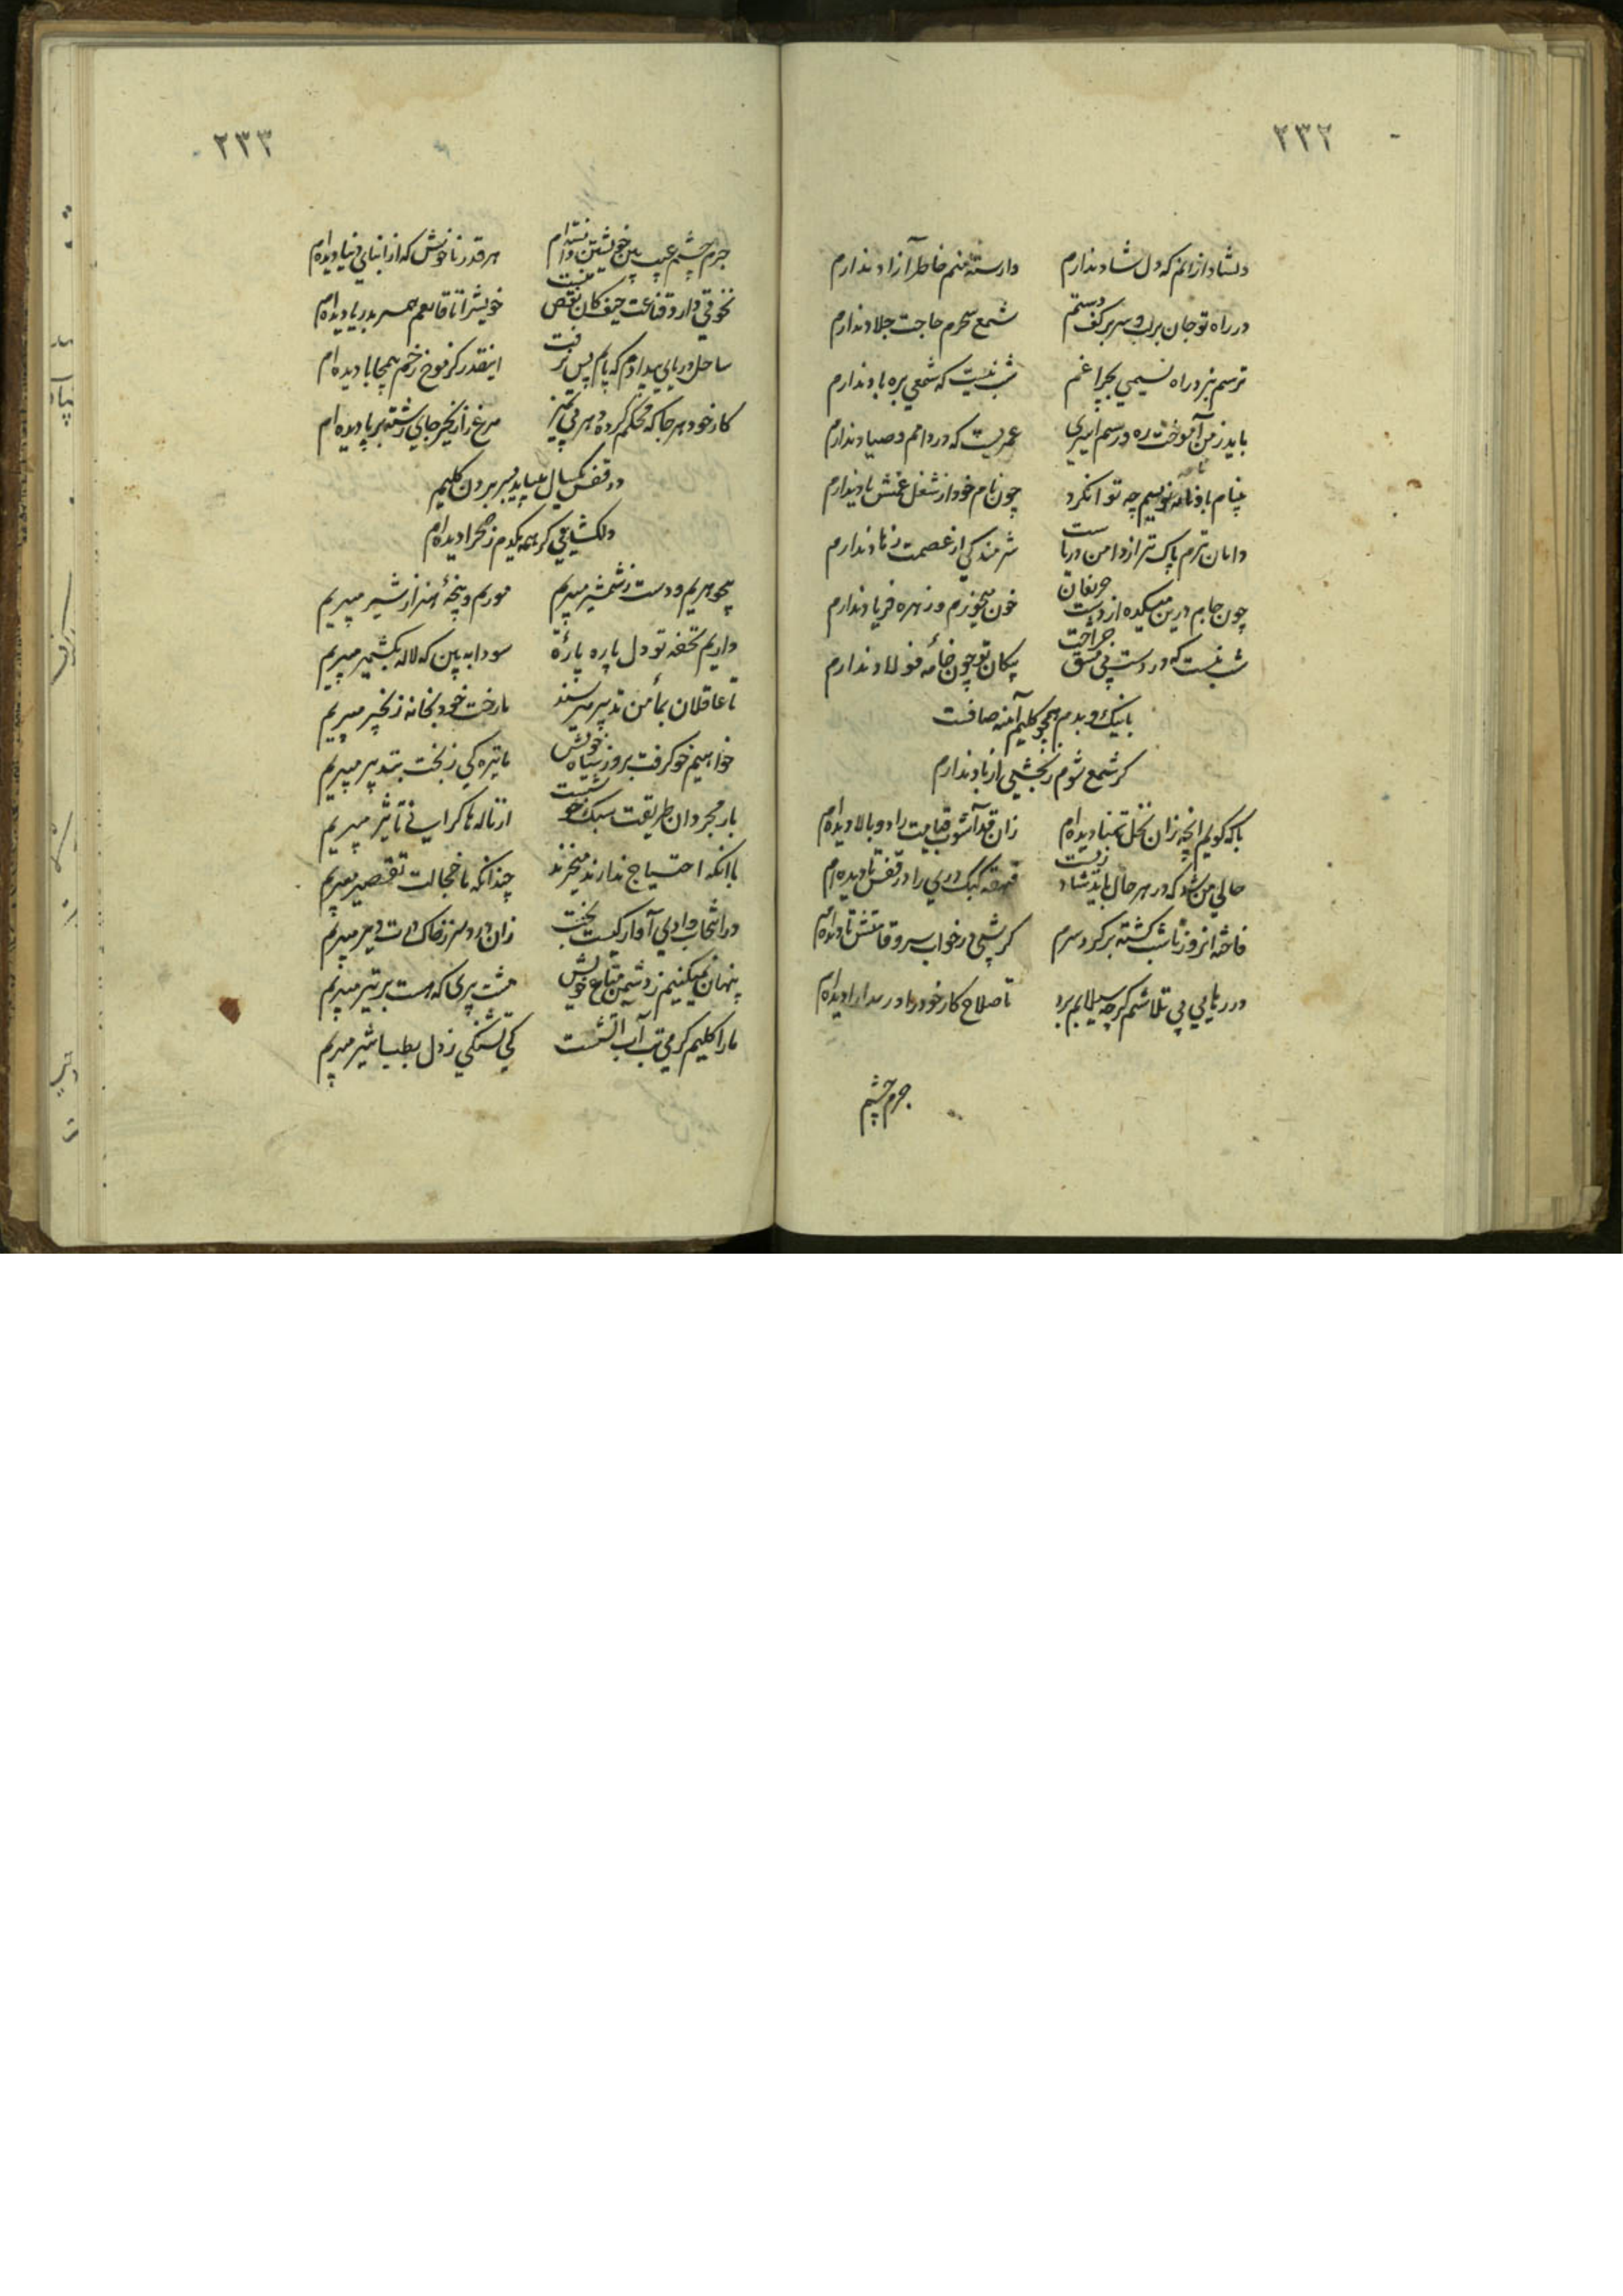 ۲۳۲
دلشاد ازانم که دل شاد ندارم وارسته منم خاطر آزاد ندارم
در راه تو جان بر لب و سر بر کف دستم شمع سحرم حاجت جلاد ندارم
ترسم نبرد راه نسیمی بچراغم شب نیست که شمعی بره باد ندارم
باید ز من آموخت ره و رسم اسیری عمریست که در دامم و صیاد ندارم
نامه نویسم چه توانکرد چون نام خود از شغل غمش یاد ندارم
دامان ترم پاک تر از دامن دریاست شرمندکی از عصمت زهاد ندارم
چون جام درین میکده از دست حریفان خون میخورم و زهره فریاد ندارم
شب نیست که در دست پی مشق جراحت پیکان تو چون خامه فولاد ندارم
با نیک و بدم همچو کلیم آینه صافست
کر شمع شوم رنجشی از باد ندارم
با که کویم انچه زان نخل تمنا دیده ام زان قد آشوب قیامت را دو بالا دیده ام
حالی من شد که در هر حال باید شاد زیست قهقه کبک دری را در قفس تا دیده ام
فاخته از روز تا شب کشته بر کرد سرم کر شبی در خواب سرو قامتش را دیده ام
در رهایی پی تلاشم کرچه سیلابم برد تا صلاح کار خود را در مدارا دیده ام
جرم چشم
۲۳۳
جرم چشم عیب بین خویشتن دانسته ام هر قدر ناخوش که از ابنای دنیا دیده ام
ذوقی دارد قناعت حیف کان بی نقص نیست خویش را تا قانعم همسر بدریا دیده ام
ساحل دریای پس نرفت اینقدر کز موج زخم بیمحابا دیده ام
کار خود هر جا که محکم کرده هر بی تمیز مرغ را زنجیر جای رشته بر پا دیده ام
در قفس یکسال میباید بسر بردن کلیم
دلکشایی کر همه یکدم ز صحرا دیده ام
بیجوهریم و دست ز شمشیر میبریم موریم و پنجه هنر از شیر میبریم
داریم تحفه تو دل پاره پاره سودا ببین که لاله بکشمیر میبریم
تا عاقلان بمأمن تدبیر میرسند ما رخت خود بخانه زنجیر میبریم
خواهیم خو کرفت بروز سیاه خویش ما تیره کی ز بخت بتدبیر میبریم
بار مجردان طریقت سبک خوشست از ناله ها کرانی تاثیر میبریم
با انکه احتیاج ندارند میخرند چندانکه ما خجالت تقصیر میبریم
در انتخاب وادی آوارکیست بخت زان
پنهان نمیکنیم ز دشمن متاع خویش مشت پری که هست بر تیر میبریم
ما را کلیم کرمی تب آب آتشست کی تشنکی ز دل بطباشیر میبریم